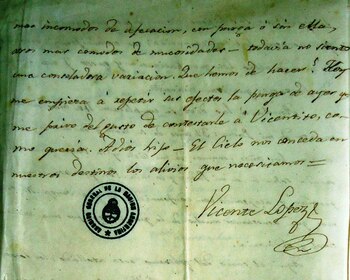 mas incomodos de defecacion, con purga ó sin ella,
mas comodos de mucosidades — todavia no siento
una consoladora variacion. Que hemos de hacer? Hoy
me empieza á repetir sus efectos la purga de ayer que
me privo del gusto de contestarle á Vicentito, co-
mo queria. Adios hijo — El Cielo nos conceda en
nuestros destinos los alivios que necesitamos =
Vicente Lopez
ARCHIVO GENERAL DE LA NACION ARGENTINA